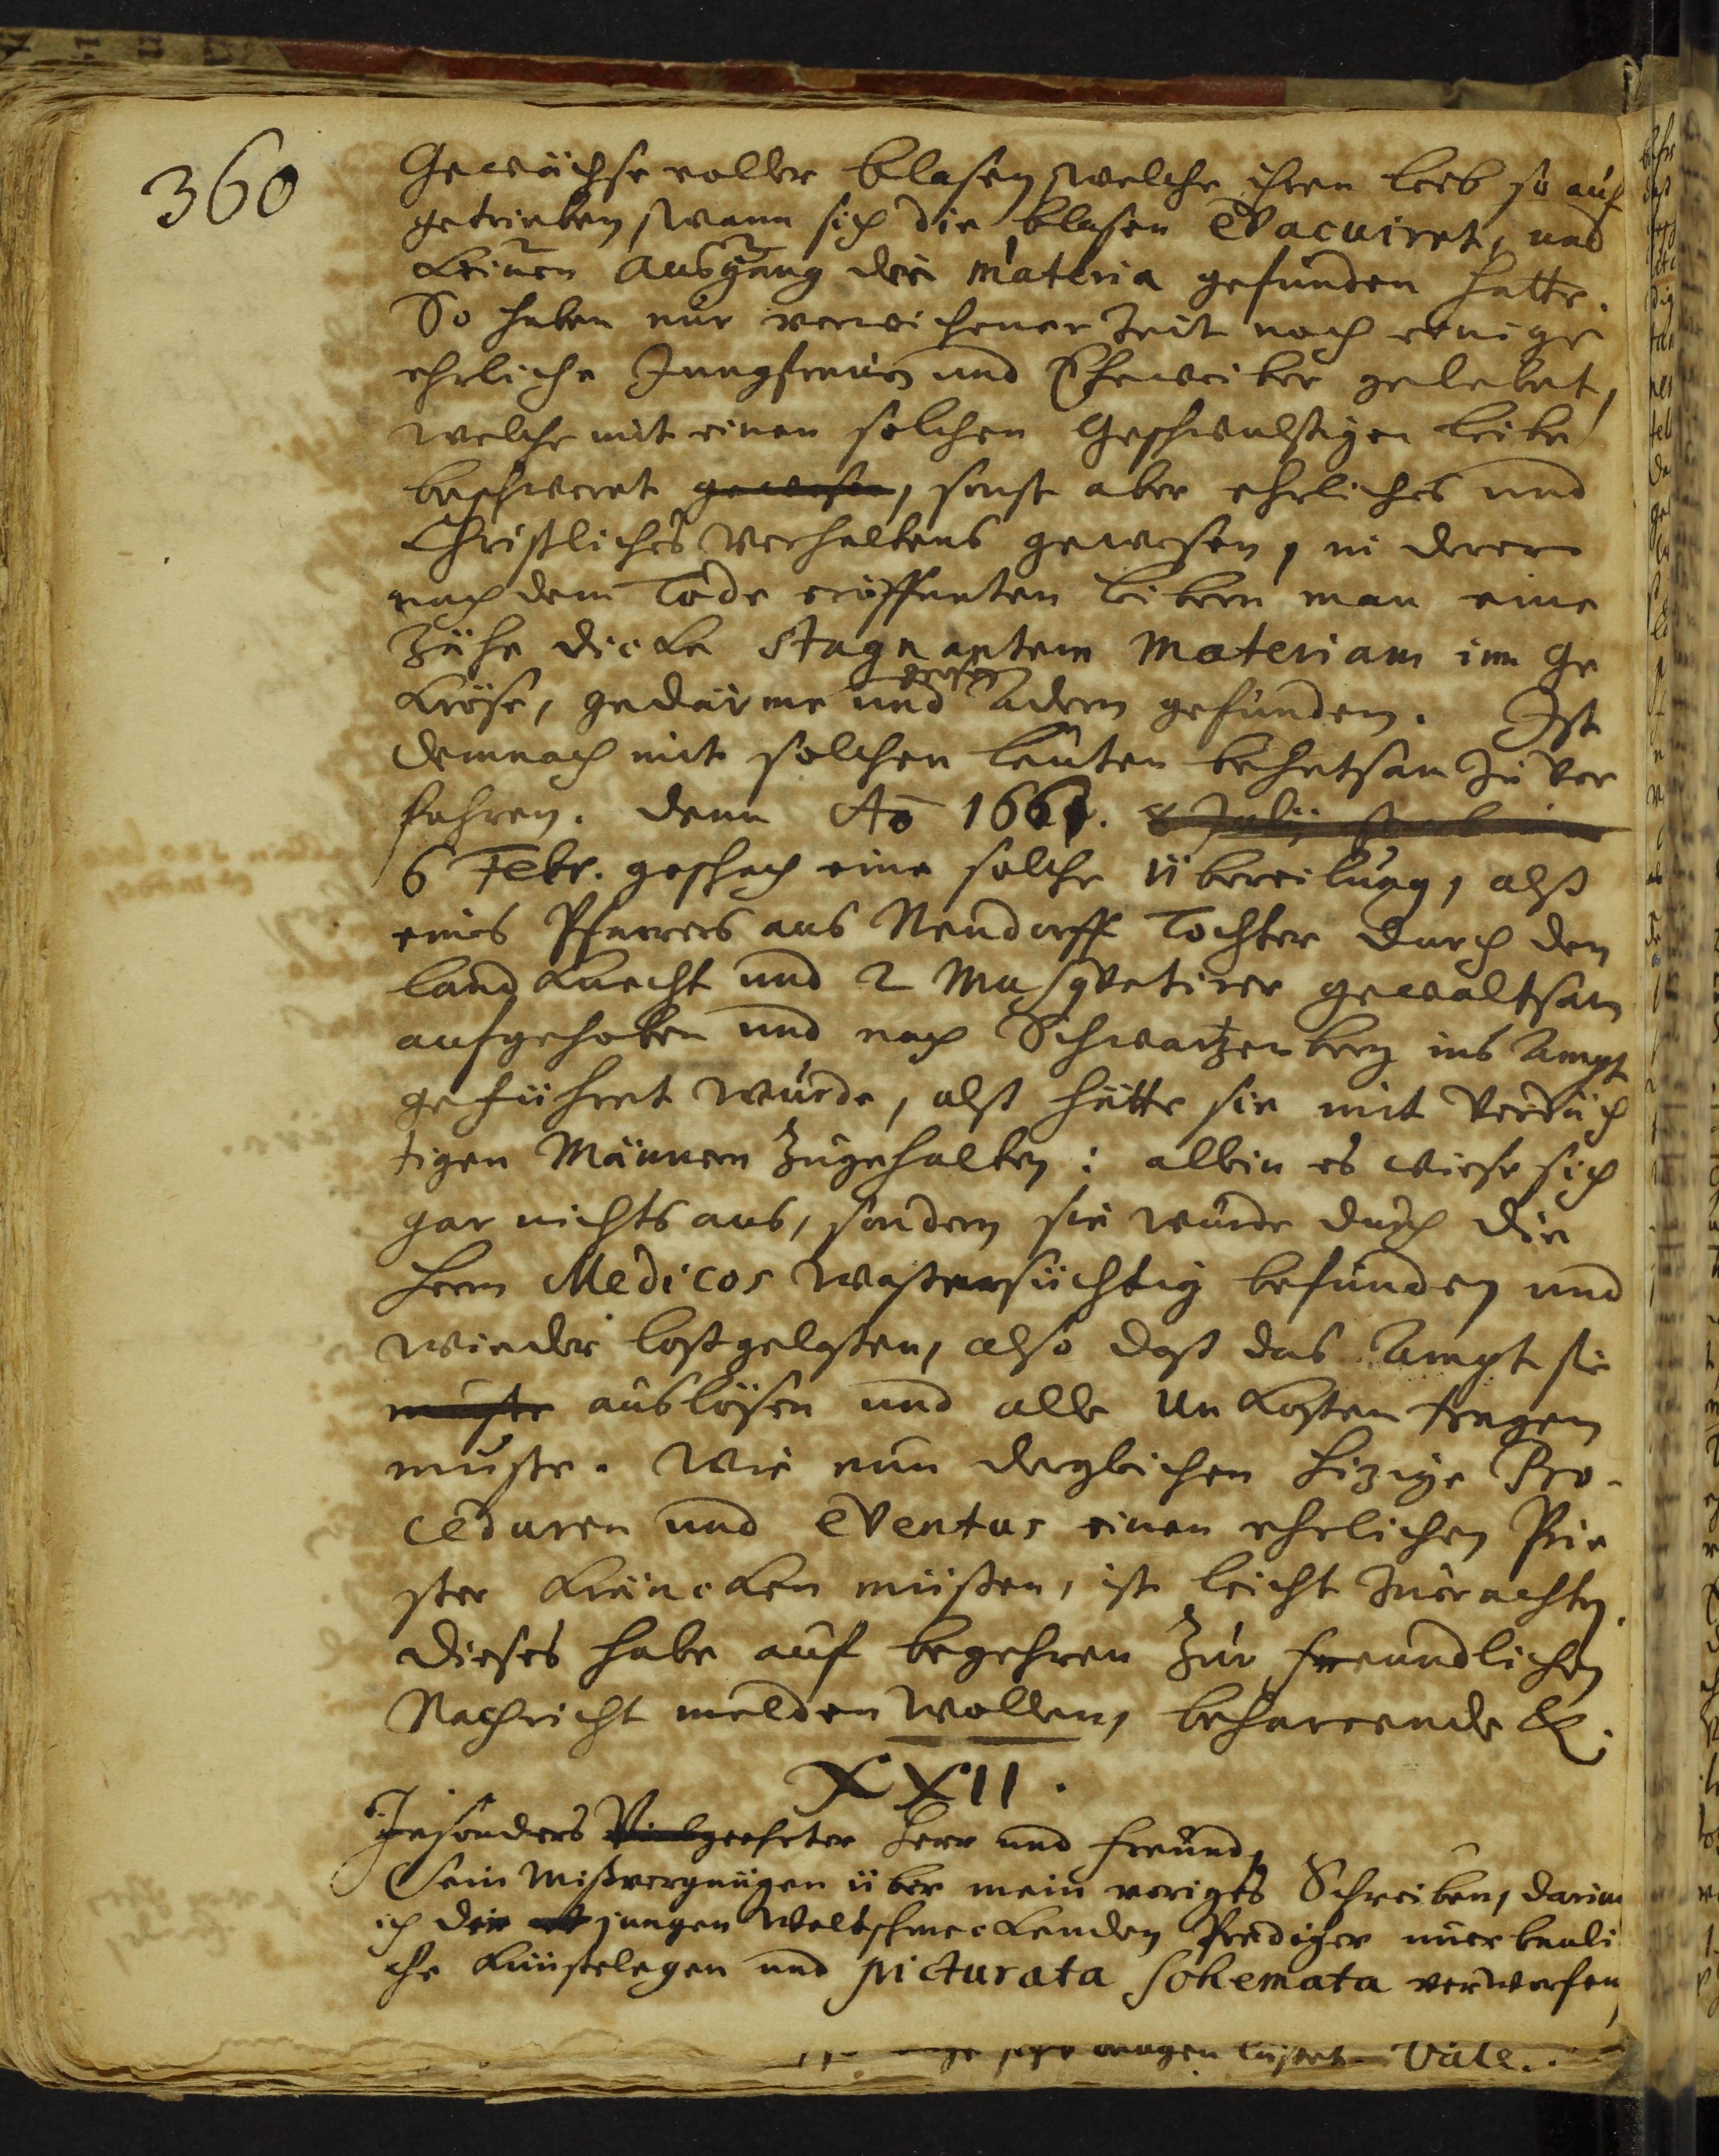 360
Gewächse voller blasen, welche ihren leib so auf
getrieben, wann sich die blasen evacuiret, und
keinen Ausgang die materia gefunden hatte.
So haben nur verwichener Zeit noch einige
ehrliche Jungfrauen und Eheweiber gelebet,
welche mit einen solchen Geschwulstigen leibe
beschweret gewesen, sonst aber ehrliches und
Christliches Verhaltens gewesen, in derer
nach dem Tode eröffneten leibern man eine
Zähe dicke stagnantem materiam im Ge
kröse, gedärme und Adern gefunden. Ist
demnach mit solchen leuten behutsam zu ver
fahren. denn Ao 1661. 8 Julij
6 Febr. geschach eine solche übereilung, alß
eines Pfarrers aus Neudorff Tochter durch den
land knecht und 2 Musqvetirer gewaltsam
aufgehoben und nach Schwartzenberg ins Ampt
geführet wurde, alß hätte sie mit verdäch
tigen Männern zugehalten: allein es wiese sich
gar nichts aus, sondern sie wurde durch die
Herrn Medicos wassersüchtig befunden und
wieder loßgelaßen, also daß das Ampt sie
muste auslösen und alle Unkosten tragen
muste. Wie nun dergleichen hizige Pro-
ceduren und eventus einen ehrlichen Prie
ster kräncken müßen, ist leicht zuerachten.
dieses habe auf begehren zur freundlichen
Nachricht melden wollen, beharrende &.
XXII.
Insonders Vielgeehrter Herr und freund,
Sein Mißvergnügen über mein voriges Schreiben, darinn
ich die jungen Weltschmeckenden Prediger unerbauli
che künsteleyen und picturata schemata verworfen,
Vale.